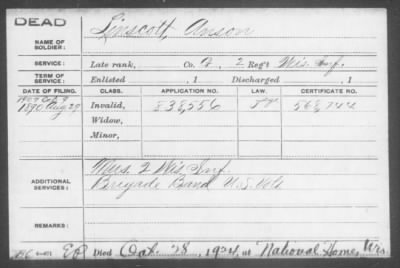 DEAD
Linscott, Anson
NAME OF SOLDIER:
SERVICE: Late rank, Co. A, 2 Reg't Wis. Inf.
TERM OF SERVICE: Enlisted , 1 Discharged , 1
DATE OF FILING. CLASS. APPLICATION NO. LAW. CERTIFICATE NO.
1890 Aug 29 Invalid, 838,556 568,744
Widow,
Minor,
ADDITIONAL SERVICES: Mus. 2 Wis. Inf.
Brigade Band U.S. Vols
REMARKS:
Died Oct. 28, 1924, at National Home, Wis.